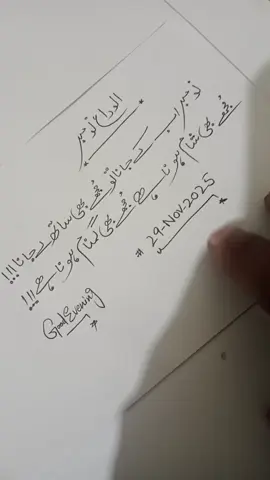 الوداع نومبر
نومبر اب کے جانا تو مجھے بھی ساتھ لے جانا!!!
مجھے بھی شام ہونا ہے مجھے بھی گمنام ہونا ہے!!!
* 29-Nov-2025 *
Good Evening